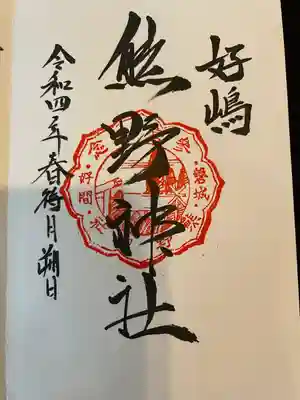 好嶋
熊野神社
令和四年春待月朔日
磐城
好間